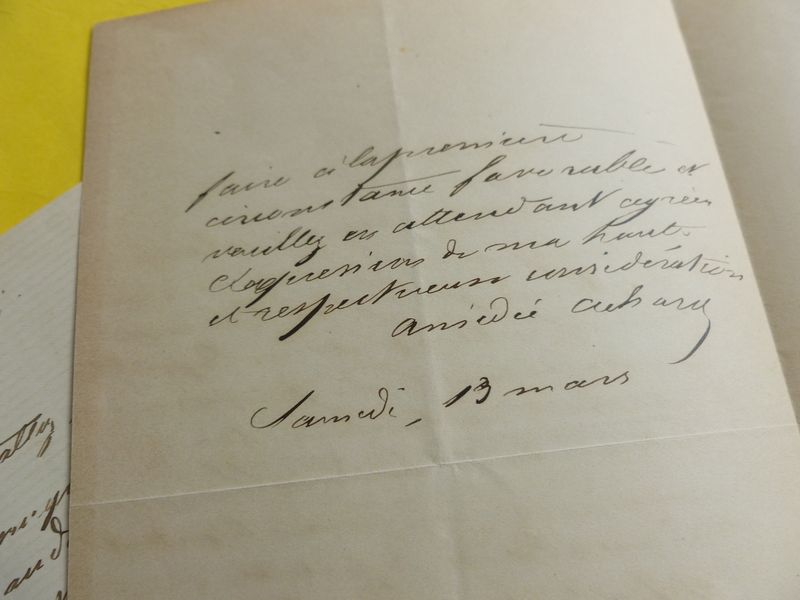 faire à la première
circonstance favorable et
veuillez en attendant agréer
l'expression de ma haute
et respectueuse considération
amédée achard
Samedi, 13 mars